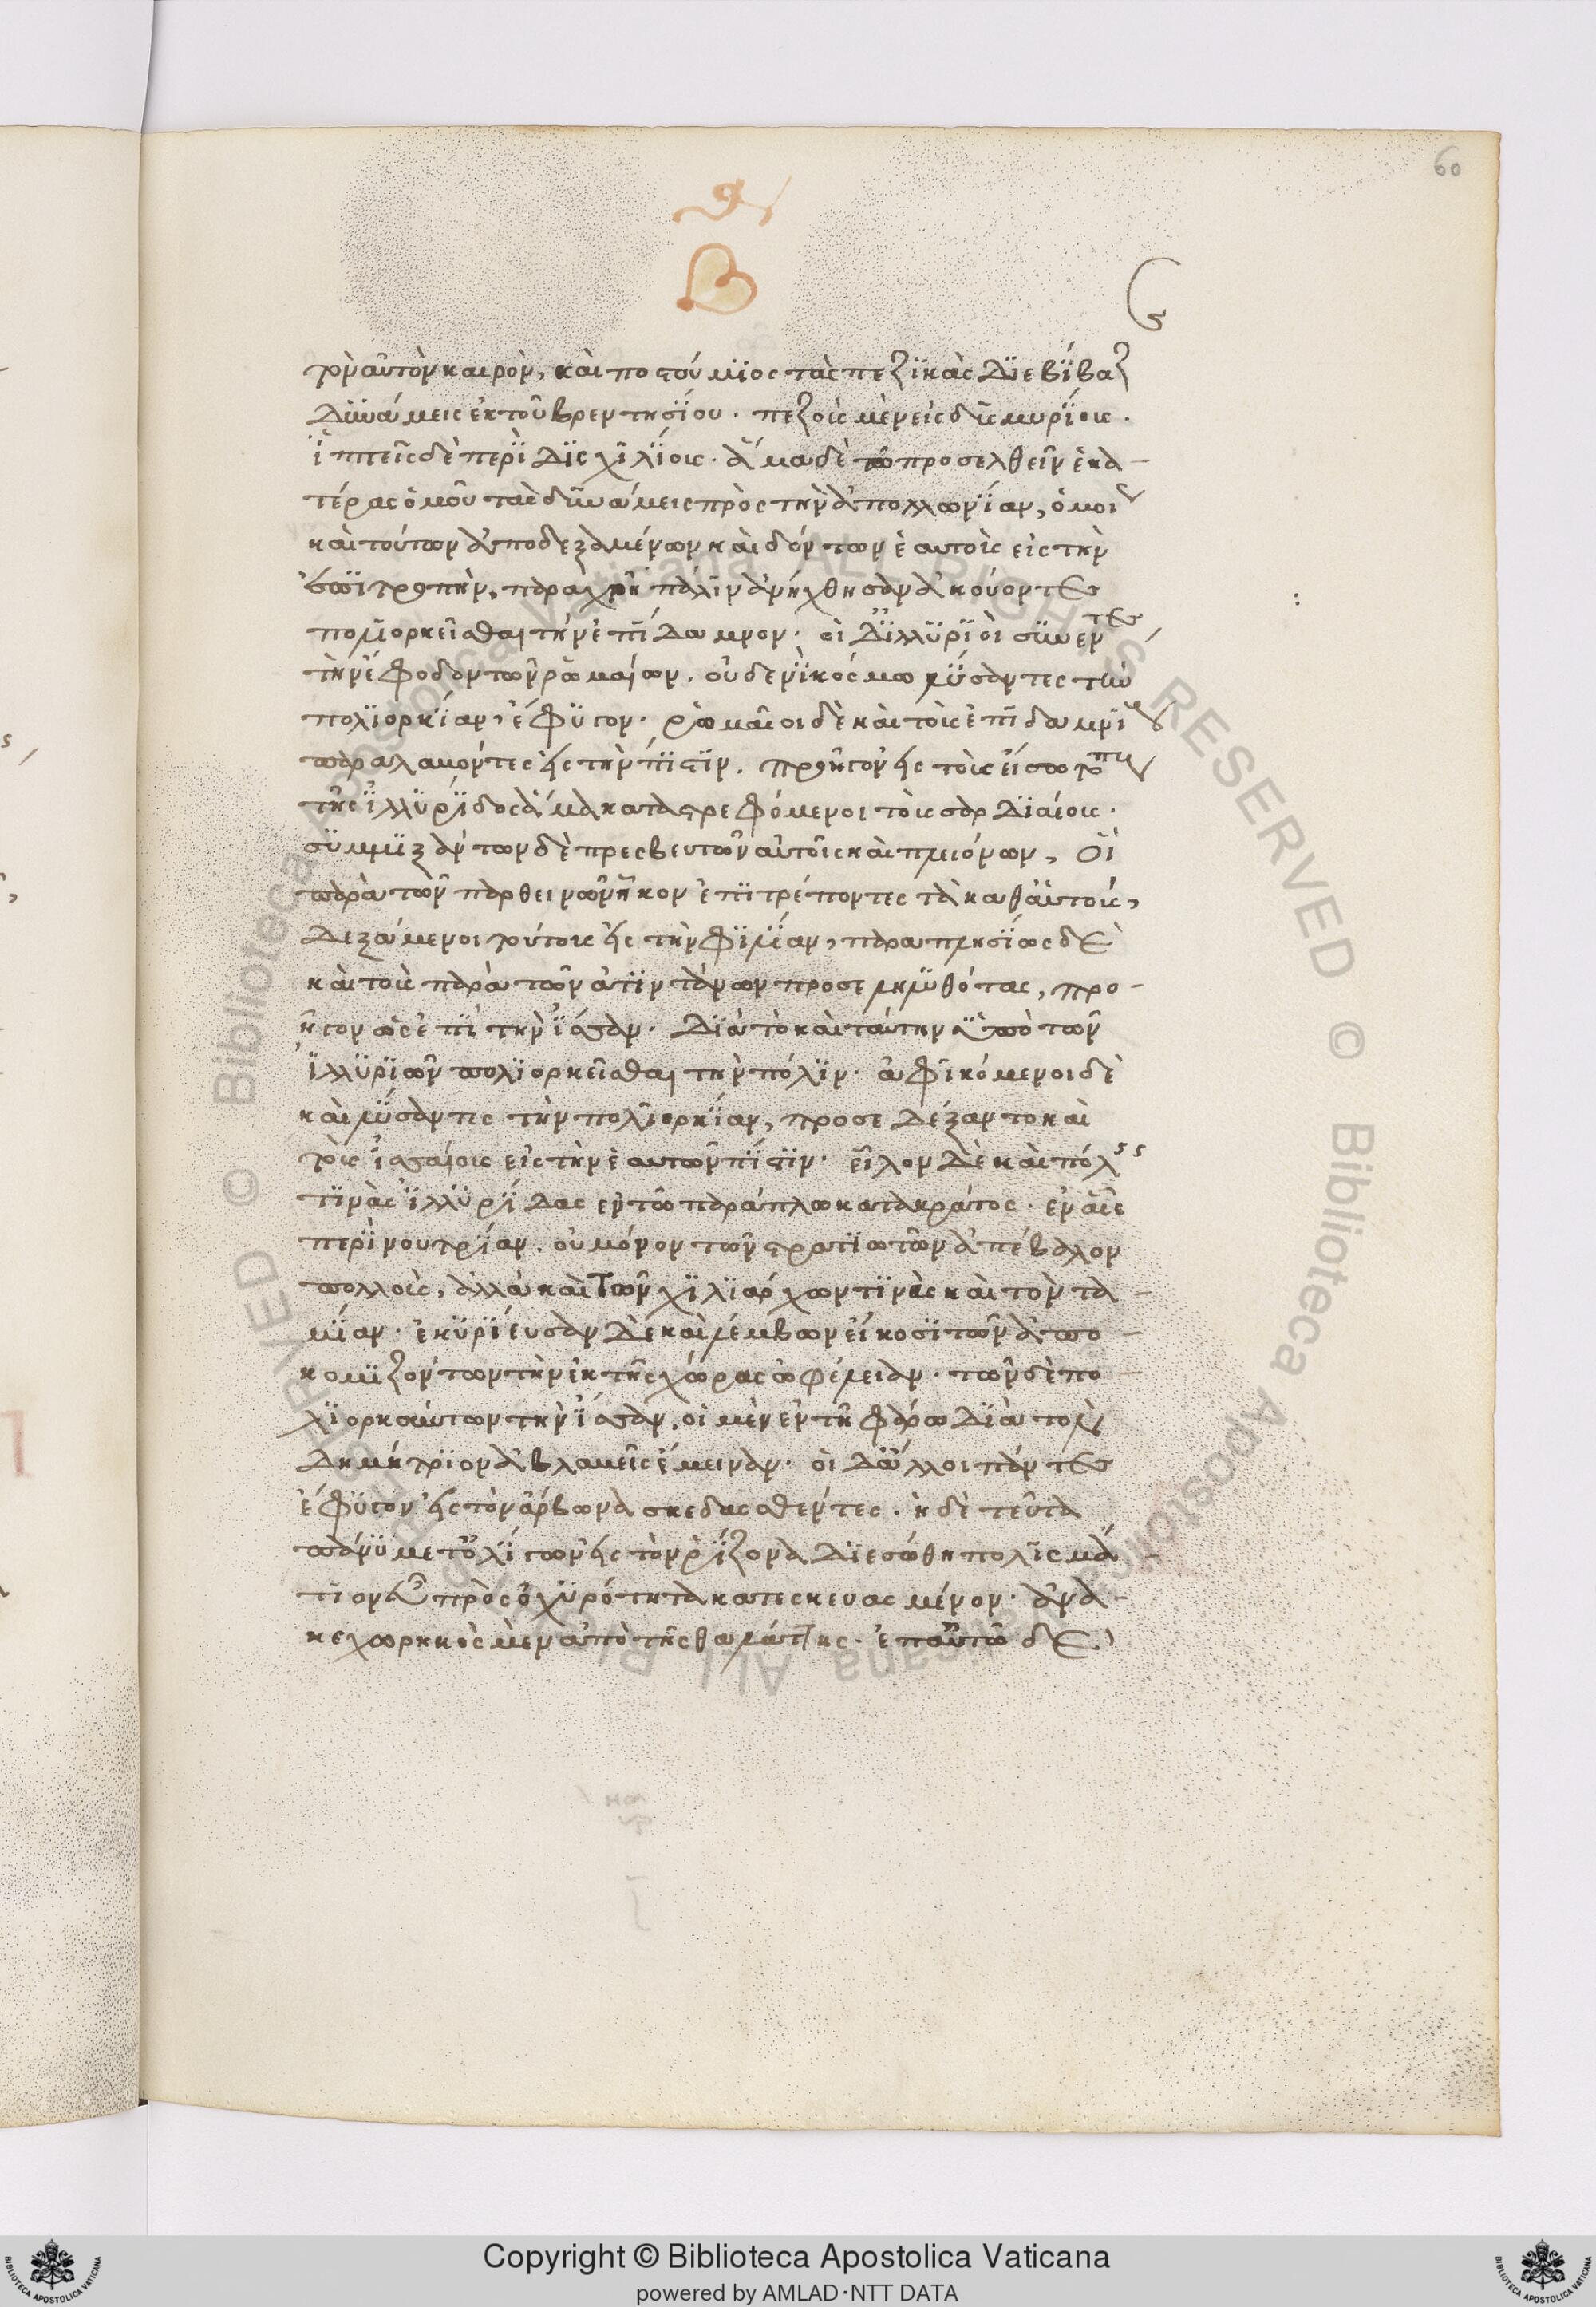 60
Β
τὸν αὐτὸν καιρὸν, καὶ ποστούμϊος τὰς πεζϊκὰς διεβίβαζ
δϋνάμεις ἐκ τοῦ βρεντησΐου. πεζοὺς μὲν εἰς δισμυρΐους.
ἱππεῖς δὲ περὶ δισχιλΐους. ἅμα δὲ τῶ προσελθεῖν ἑκα-
τέρας ὁμοῦ τὰς δϋνάμεις πρὸς τὴν ἀπολλωνΐαν, ὁμοί
καὶ τούτων ἀποδεξαμένων καὶ δόντων ἑαυτοὺς εἰς τὴν
ἐπιτροπὴν, παραχρῆμα πάλιν ἀνήχθησαν ἀκούοντες
πολϊορκεῖσθαι τὴν ἐπίδαμνον. οἱ δ ἰλλϋριοὶ σϋνέντες
τὴν ἔφοδον τῶν ῥωμαίων. οὐδενὶ κόσμω λύσαντες τὴν
πολϊορκΐαν, ἔφϋγον. ῥωμαῖοι δὲ καὶ τοὺς ἐπιδαμνΐους
παραλαβόντες εἰς τὴν πίστιν. προῆγον εἰς τοὺς εἴσω τόπους
τῆς ἰλλϋρΐδος ἅμα καταστρεφόμενοι τοὺς αρδϊαίους.
σϋμμϊξάντων δὲ πρεσβευτῶν αὐτοῖς καὶ πλειόνων, ὧν οἱ
παρὰ τῶν παρθεινῶν ἧκον ἐπιτρέποντες τὰ καθ αὑτοὺς,
δεξάμενοι τούτους εἰς τὴν φϊλΐαν, παραπλησΐως δὲ
καὶ τοὺς παρὰ τῶν ἀτϊντάνων προσεληλϋθότας, προ-
ῆγον ὡς ἐπὶ τὴν ἴσσαν. διὰ τὸ καὶ ταύτην ὑπὸ τῶν
ἰλλϋρϊῶν πολϊορκεῖσθαι τὴν πόλϊν. ἀφϊκόμενοι δὲ
καὶ λύσαντες τὴν πολϊορκΐαν, προσεδέξαντο καὶ
τοὺς ἰσσαίους εἰς τὴν ἑαυτῶν πίστιν. εἷλον δὲ καὶ πόλ
τϊνὰς ἰλλϋρΐδας ἐν τῶ παράπλω κατα κράτος. ἐν αἷς
περὶ νουτρΐαν. οὐ μόνον τῶν στρατϊωτῶν ἀπέβαλον
πολλοὺς, ἀλλὰ καὶ τῶν χϊλϊάρχων τϊνὰς καὶ τὸν τα-
μΐαν. ἐκϋρΐευσαν δὲ καὶ λέμβων εἴκοσϊ τῶν ἀπο-
κομϊζόντων τὴν ἐκ τῆς χώρας ὠφέλειαν. τῶν δὲ πο-
λϊορκούντων τὴν ἴσσαν, οἱ μὲν ἐν τῆ φάρω διὰ τὸν
δημήτρϊον ἀβλαβεῖς ἔμειναν. οἱ δ ἄλλοι πάντες
ἔφϋγον εἰς τὸν ἄρβωνα σκεδασθέντες. ἡ δὲ τεῦτα
πάνϋ μετ ὀλΐγων εἰς τὸν ῥΐζονα διεσώθη πολϊσμά-
τιον εὖ πρὸς ὀχϋρότητα κατεσκευασμένον. ἀνα-
κεχωρηκὸς μὲν ἀπὸ τῆς θαλάττης. ἐπ αὐτῶ δὲ
Copyright © Biblioteca Apostolica Vaticana
powered by AMLAD·NTT DATA